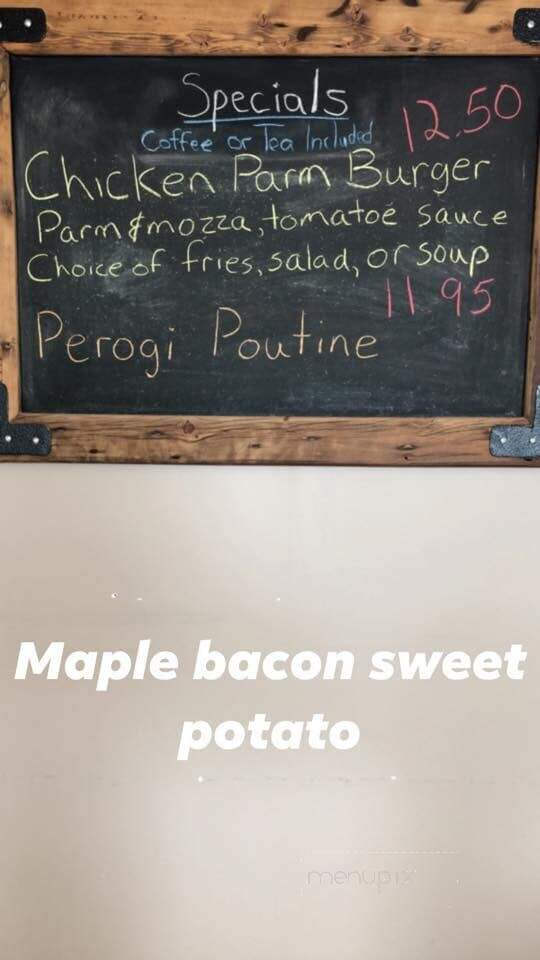 Specials
Coffee or Tea Included
12.50
Chicken Parm Burger
Parm & mozza, tomatoe sauce
Choice of fries, salad, or soup
11.95
Perogi Poutine
Maple bacon sweet
potato
menupix